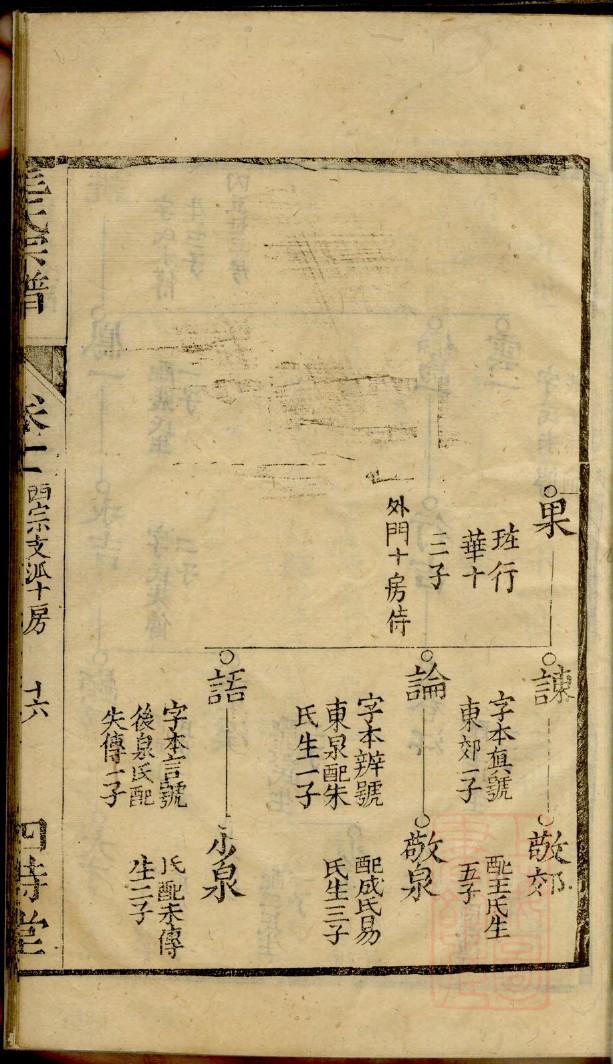 果
珄行
華十
三子
外門十房侍
諫
字本眞號
東郊一子
敬郊
配王氏生
五子
論
字本辨號
東泉配朱
氏生一子
敬泉
配成氏易
氏生三子
語
字本言號
後泉氏配
失傳一子
小泉
氏配未傳
生二子
氏宗譜
卷十一
西宗支派十房
十六
四詩堂